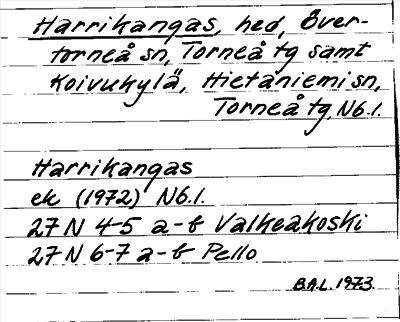 Harrikangas, hed, Över-
torneå sn, Torneå tg samt
Koivukylä, Hietaniemi sn,
Torneå tg, Nb.l.
Harrikangas
ek (1972) Nb.l.
27 N 4-5 a-b Valkeakoski
27 N 6-7 a-b Pello
B.A.L. 1973